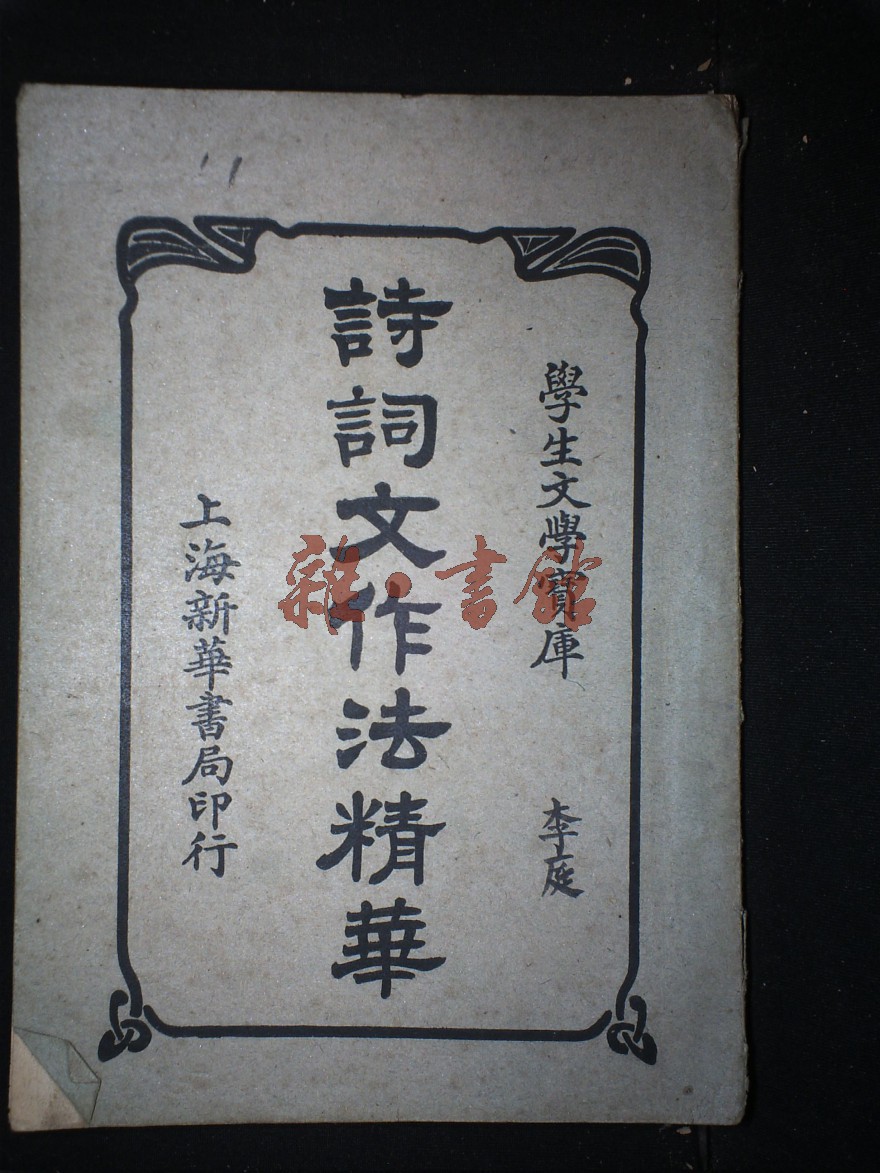 學生文學寶庫
李庭
詩詞文作法精華
上海新華書局印行
雜·書館